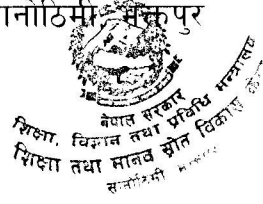 सानोठिमी, भक्तपुर
नेपाल सरकार
शिक्षा, विज्ञान तथा प्रविधि मन्त्रालय
शिक्षा तथा मानव स्रोत विकास केन्द्र
सानोठिमी